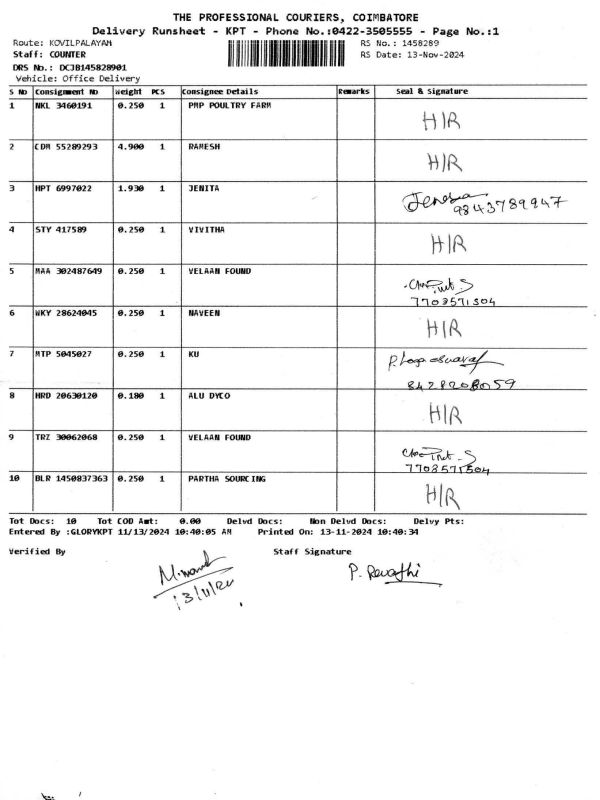 THE PROFESSIONAL COURIERS, COIMBATORE
Delivery Runsheet - KPT - Phone No.:0422-3505555 - Page No.:1
Route: KOVILPALAYAM RS No.: 1458289
Staff: COUNTER RS Date: 13-Nov-2024
DRS No.: DCJB145828901
Vehicle: Office Delivery
S No Consignment No Weight PCS Consignee Details Remarks Seal & Signature
1 NKL 3460191 0.250 1 PMP POULTRY FARM H/R
2 CDM 55289293 4.900 1 RAMESH H/R
3 HPT 6997022 1.930 1 JENITA
9843789947
4 STY 417589 0.250 1 VIVITHA H/R
5 MAA 302487649 0.250 1 VELAAN FOUND
7708571504
6 WKY 28624045 0.250 1 NAVEEN H/R
7 MTP 5045027 0.250 1 KU
8428208059
8 HRD 20630120 0.180 1 ALU DYCO H/R
9 TRZ 30062068 0.250 1 VELAAN FOUND
7708571504
10 BLR 1450837363 0.250 1 PARTHA SOURCING H/R
Tot Docs: 10 Tot COD Amt: 0.00 Delvd Docs: Non Delvd Docs: Delvy Pts:
Entered By :GLORYKPT 11/13/2024 10:40:05 AM Printed On: 13-11-2024 10:40:34
Verified By Staff Signature
P. Revathi
13/11/24